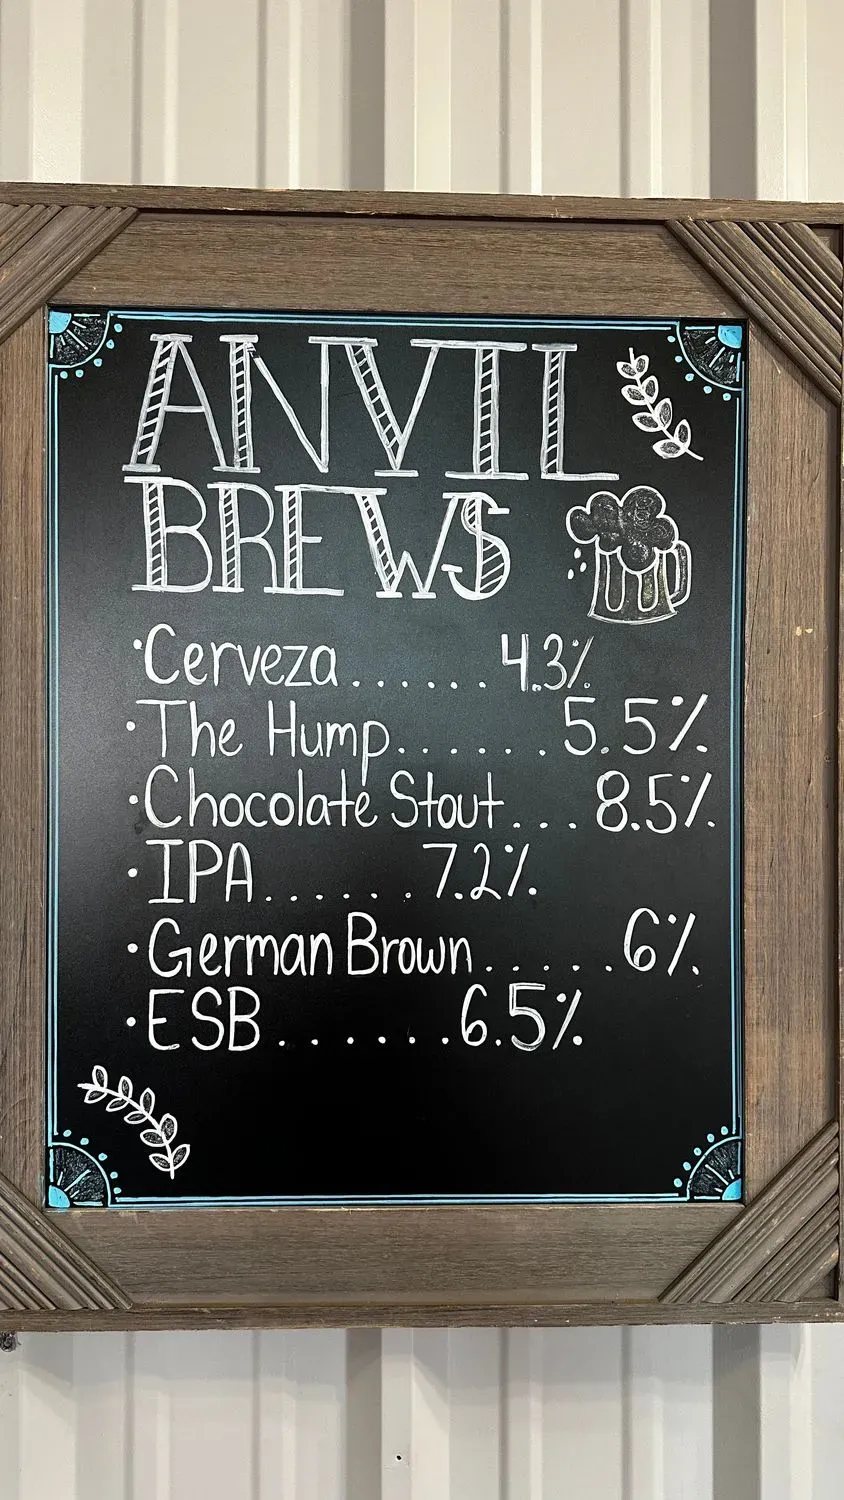 ANVIL
BREWS
·Cerveza......4.3%
·The Hump.......5.5%
·Chocolate Stout...8.5%
·IPA.......7.2%
·German Brown.....6%
·ESB.......6.5%